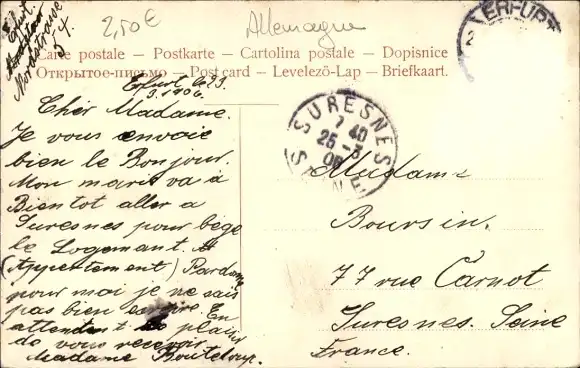 2,50 €
Allemagne
Erfurt.
Nordstrasse
54.
ERFURT
Carte postale – Postkarte – Cartolina postale – Dopisnice
Открытое-письмо – Post card – Levelező-Lap – Briefkaart.
Erfurt le 23.
3. 1906.
Cher Madame.
Je vous envoie
bien le Bonjour.
Mon mari va à
Bientot aller a
Suresnes pour
le Logemant.
(Appertement) Pardone
pour moi je ne sais
pas bien
En
attendent plaisir
de vous recevoir
Madame Bouteloup.
SURESNES
7 40
25 - 3
06
SEINE
Madame
Boursin.
77 rue Carnot
Suresnes. Seine
France.